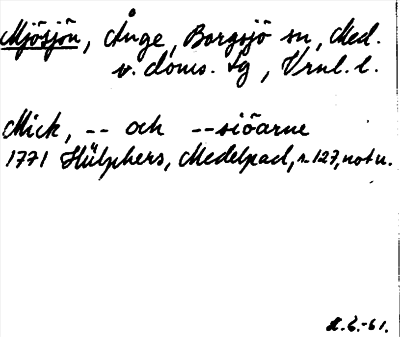 Mjösjön, Ånge, Borgsjö sn, Med.
v. doms. tg, Vrnl. l.
Mick, -- och --siöarne
1771 Hülphers, Medelpad, s. 127, not u.
-61.